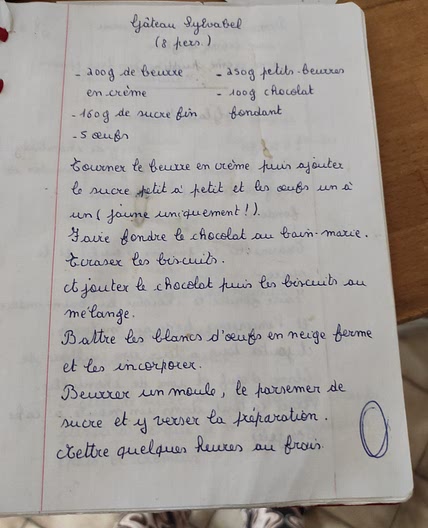 Gâteau Sylvabel
(8 pers.)
- 200g de beurre
en crème
- 160g de sucre fin
- 5 œufs
- 250g petits-beurres
- 100g chocolat
fondant
Tourner le beurre en crème puis ajouter
le sucre petit à petit et les œufs un à
un (jaune uniquement !).
Faire fondre le chocolat au bain-marie.
Ecraser les biscuits.
Ajouter le chocolat puis les biscuits au
mélange.
Battre les blancs d'œufs en neige ferme
et les incorporer.
Beurrer un moule, le parsemer de
sucre et y verser la préparation.
Mettre quelques heures au frais.